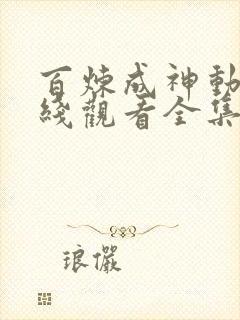 百炼成神動
綫觀看全集
琅儼